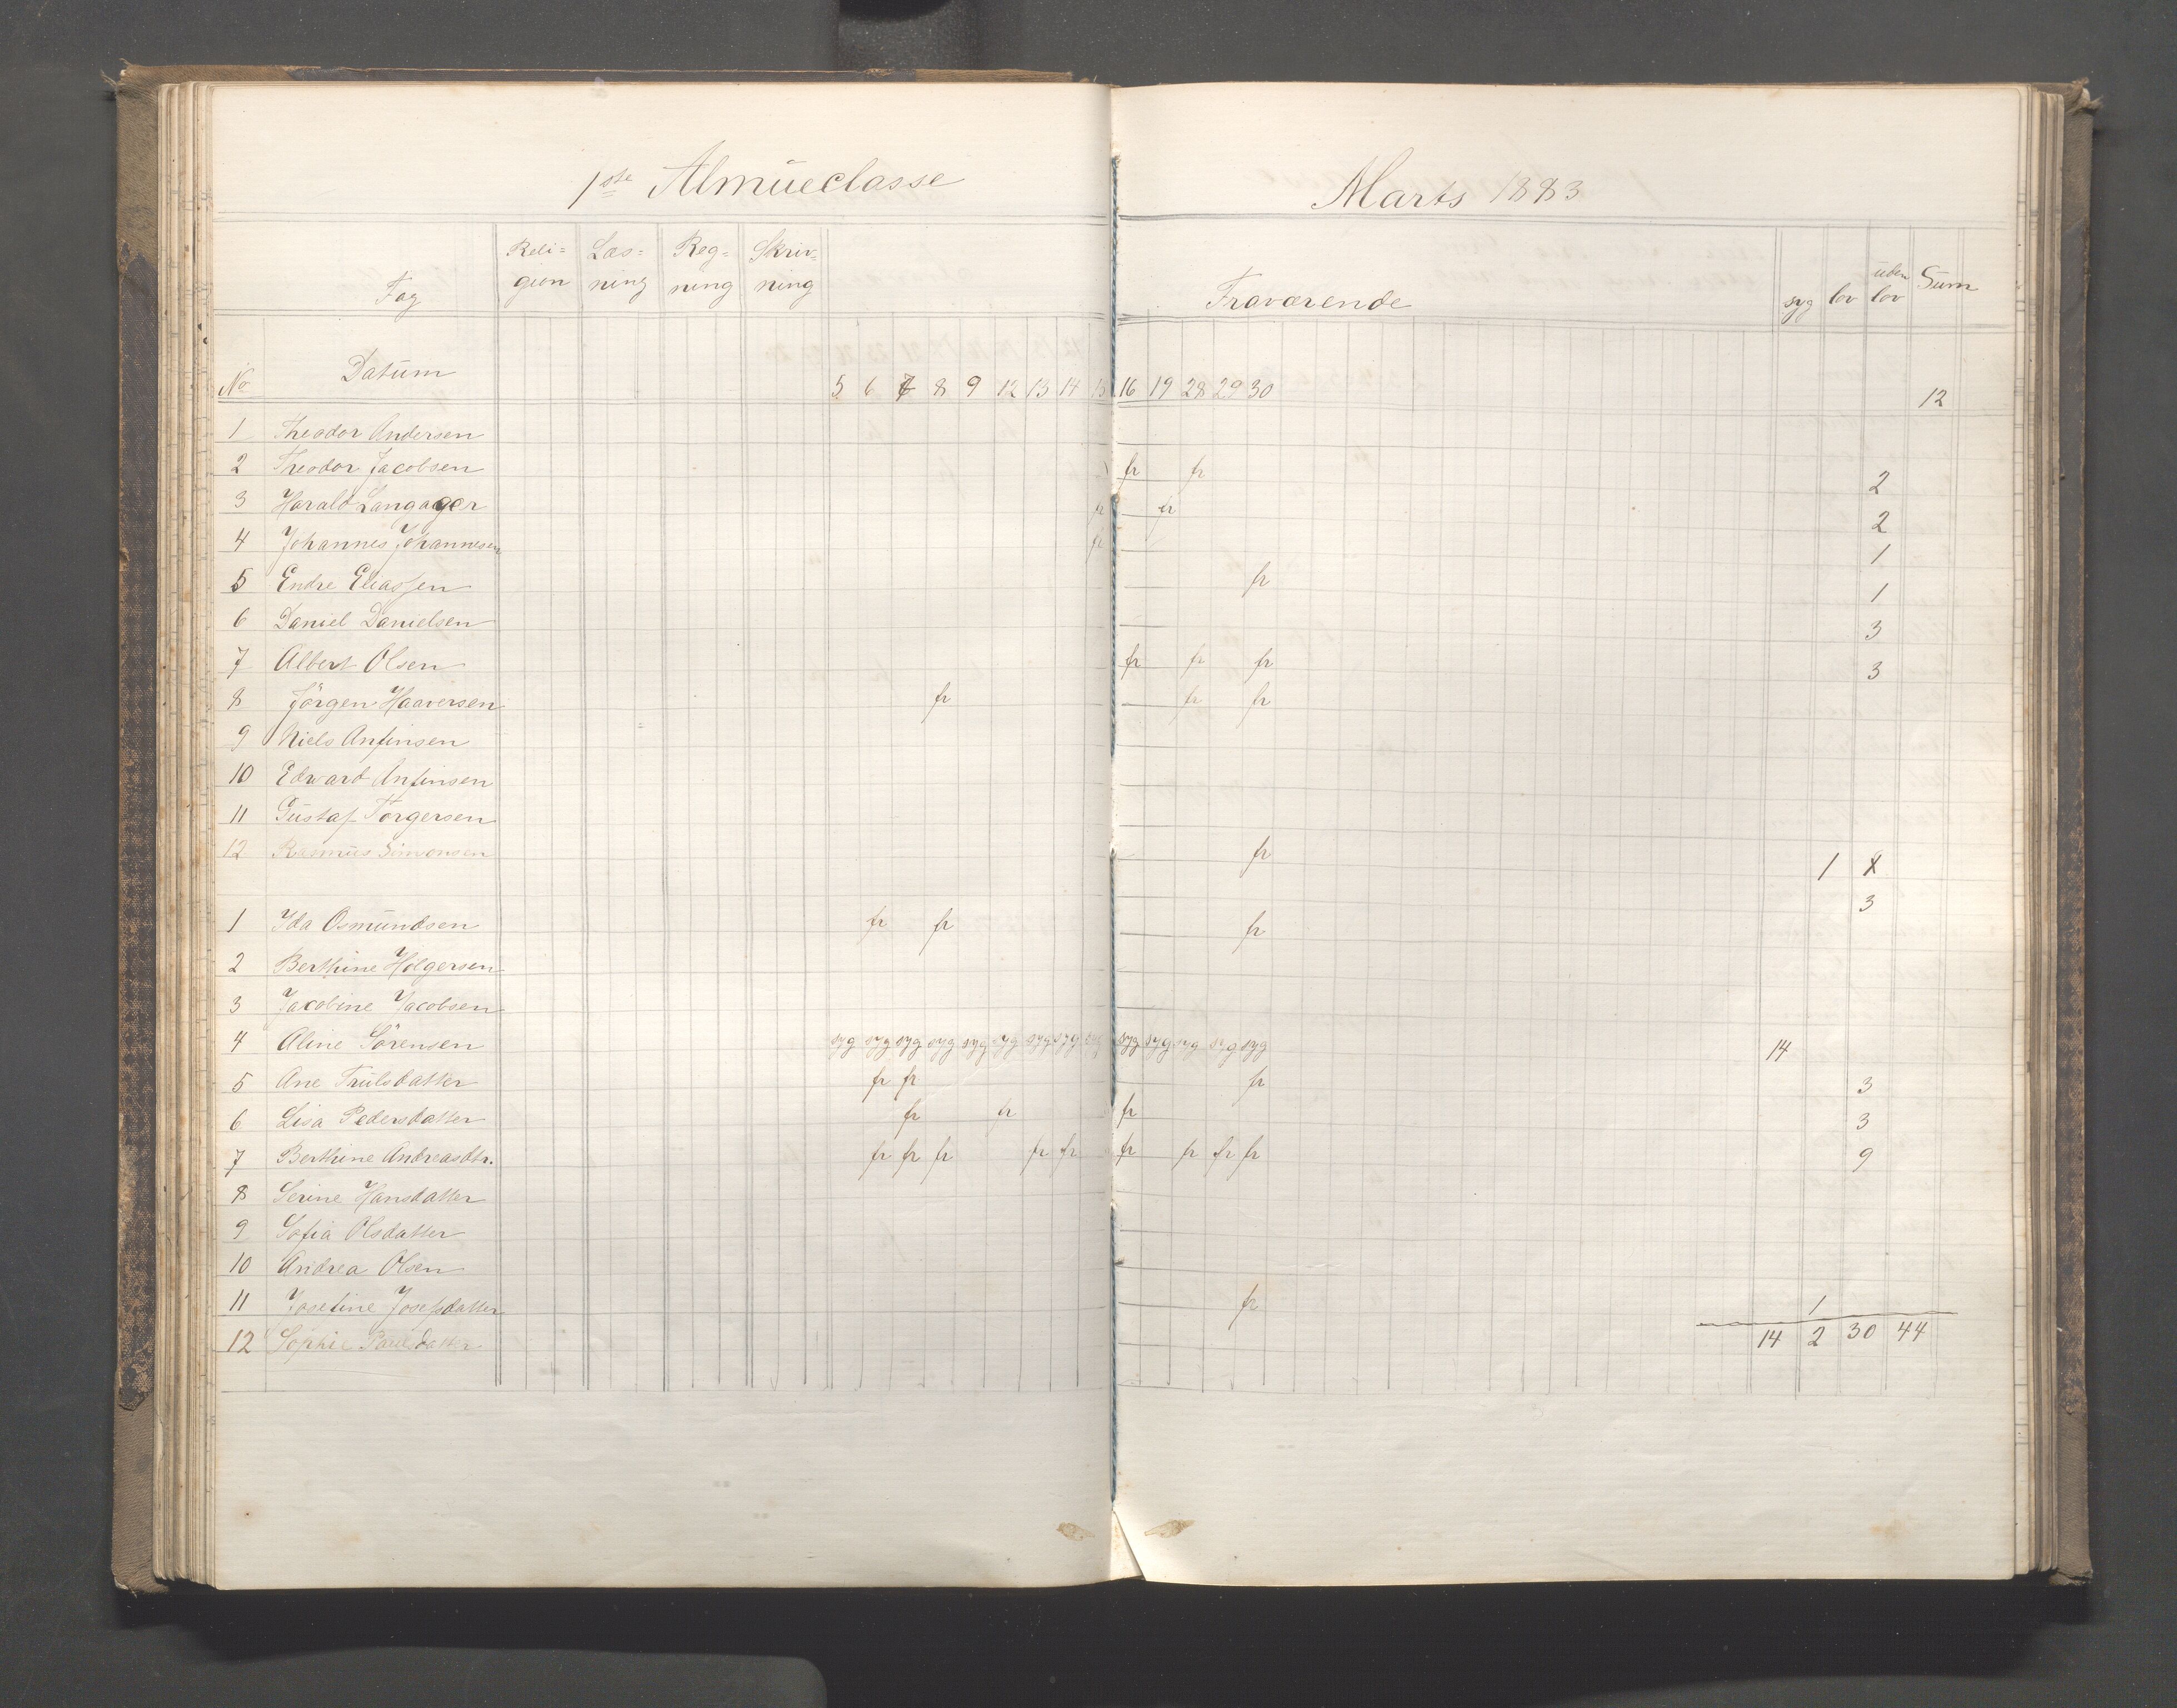 1ste Almueclasse Marts 1883
Fag Reli=gion Læs=ning Reg=ning Skriv=ning Fraværende syg lov uden lov Sum
No Datum 5 6 7 8 9 12 13 14 15 16 19 28 29 30 12
1 Theodor Andersen
2 Theodor Jacobsen fr fr 2
3 Harald Langager fr fr 2
4 Johannes Johannesen fr 1
5 Endre Eliassen fr 1
6 Daniel Danielsen 3
7 Albert Olsen fr fr fr 3
8 Jörgen Haaversen fr fr fr
9 Niels Anfinsen
10 Edward Anfinsen
11 Gustaf Torgersen
12 Rasmus Simonsen fr 1
1 Ida Osmundsen fr fr fr 3
2 Berthine Holgersen
3 Jacobine Jacobsen
4 Aline Sörensen syg syg syg syg syg syg syg syg syg syg syg syg syg syg 14
5 Ane Trulsdatter fr fr fr 3
6 Lisa Pedersdatter fr fr fr 3
7 Berthine Andreasdtr. fr fr fr fr fr fr fr fr fr 9
8 Serine Hansdatter
9 Sofia Olsdatter
10 Andrea Olsen
11 Josefine Josefsdatter fr 1
12 Sophie Paulsdatter 14 2 30 44